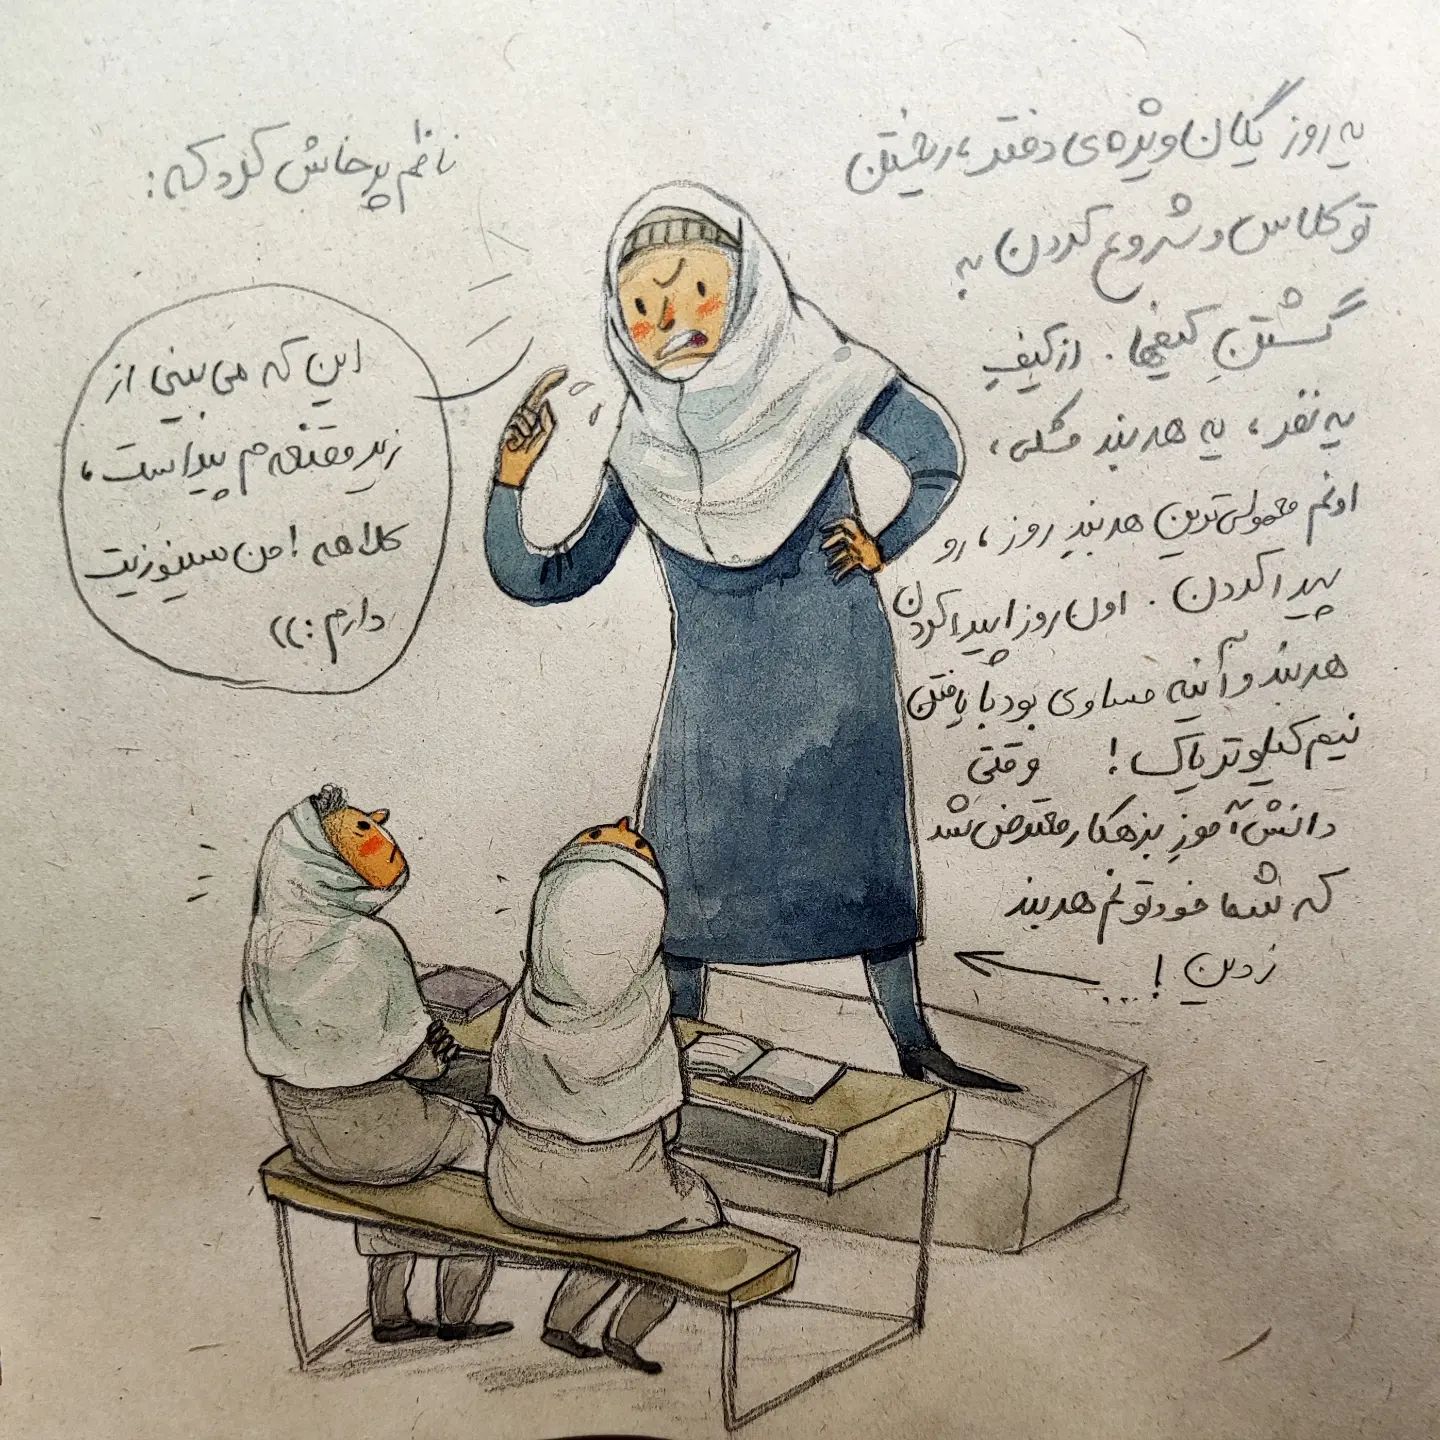 یه روز یگان ویژه‌ی دفتر، ریختن
تو کلاس و شروع کردن به
گشتنِ کیفها. از کیفِ
یه نفر، یه هدبند مشکی،
اونم معمولی‌ترین هدبندِ روز، رو
پیدا کردن. اون روزا پیدا کردن
هدبند و آینه مساوی بود با یافتن
نیم کیلو تریاک! وقتی
دانش‌آموزِ بزهکار معترض شد
که شما خودتونم هدبند
زدین!
ناظم پرخاش کرد که:
این که می‌بینی از
زیر مقنعه‌م پیداست،
کلاهه! من سینوزیت
دارم :))